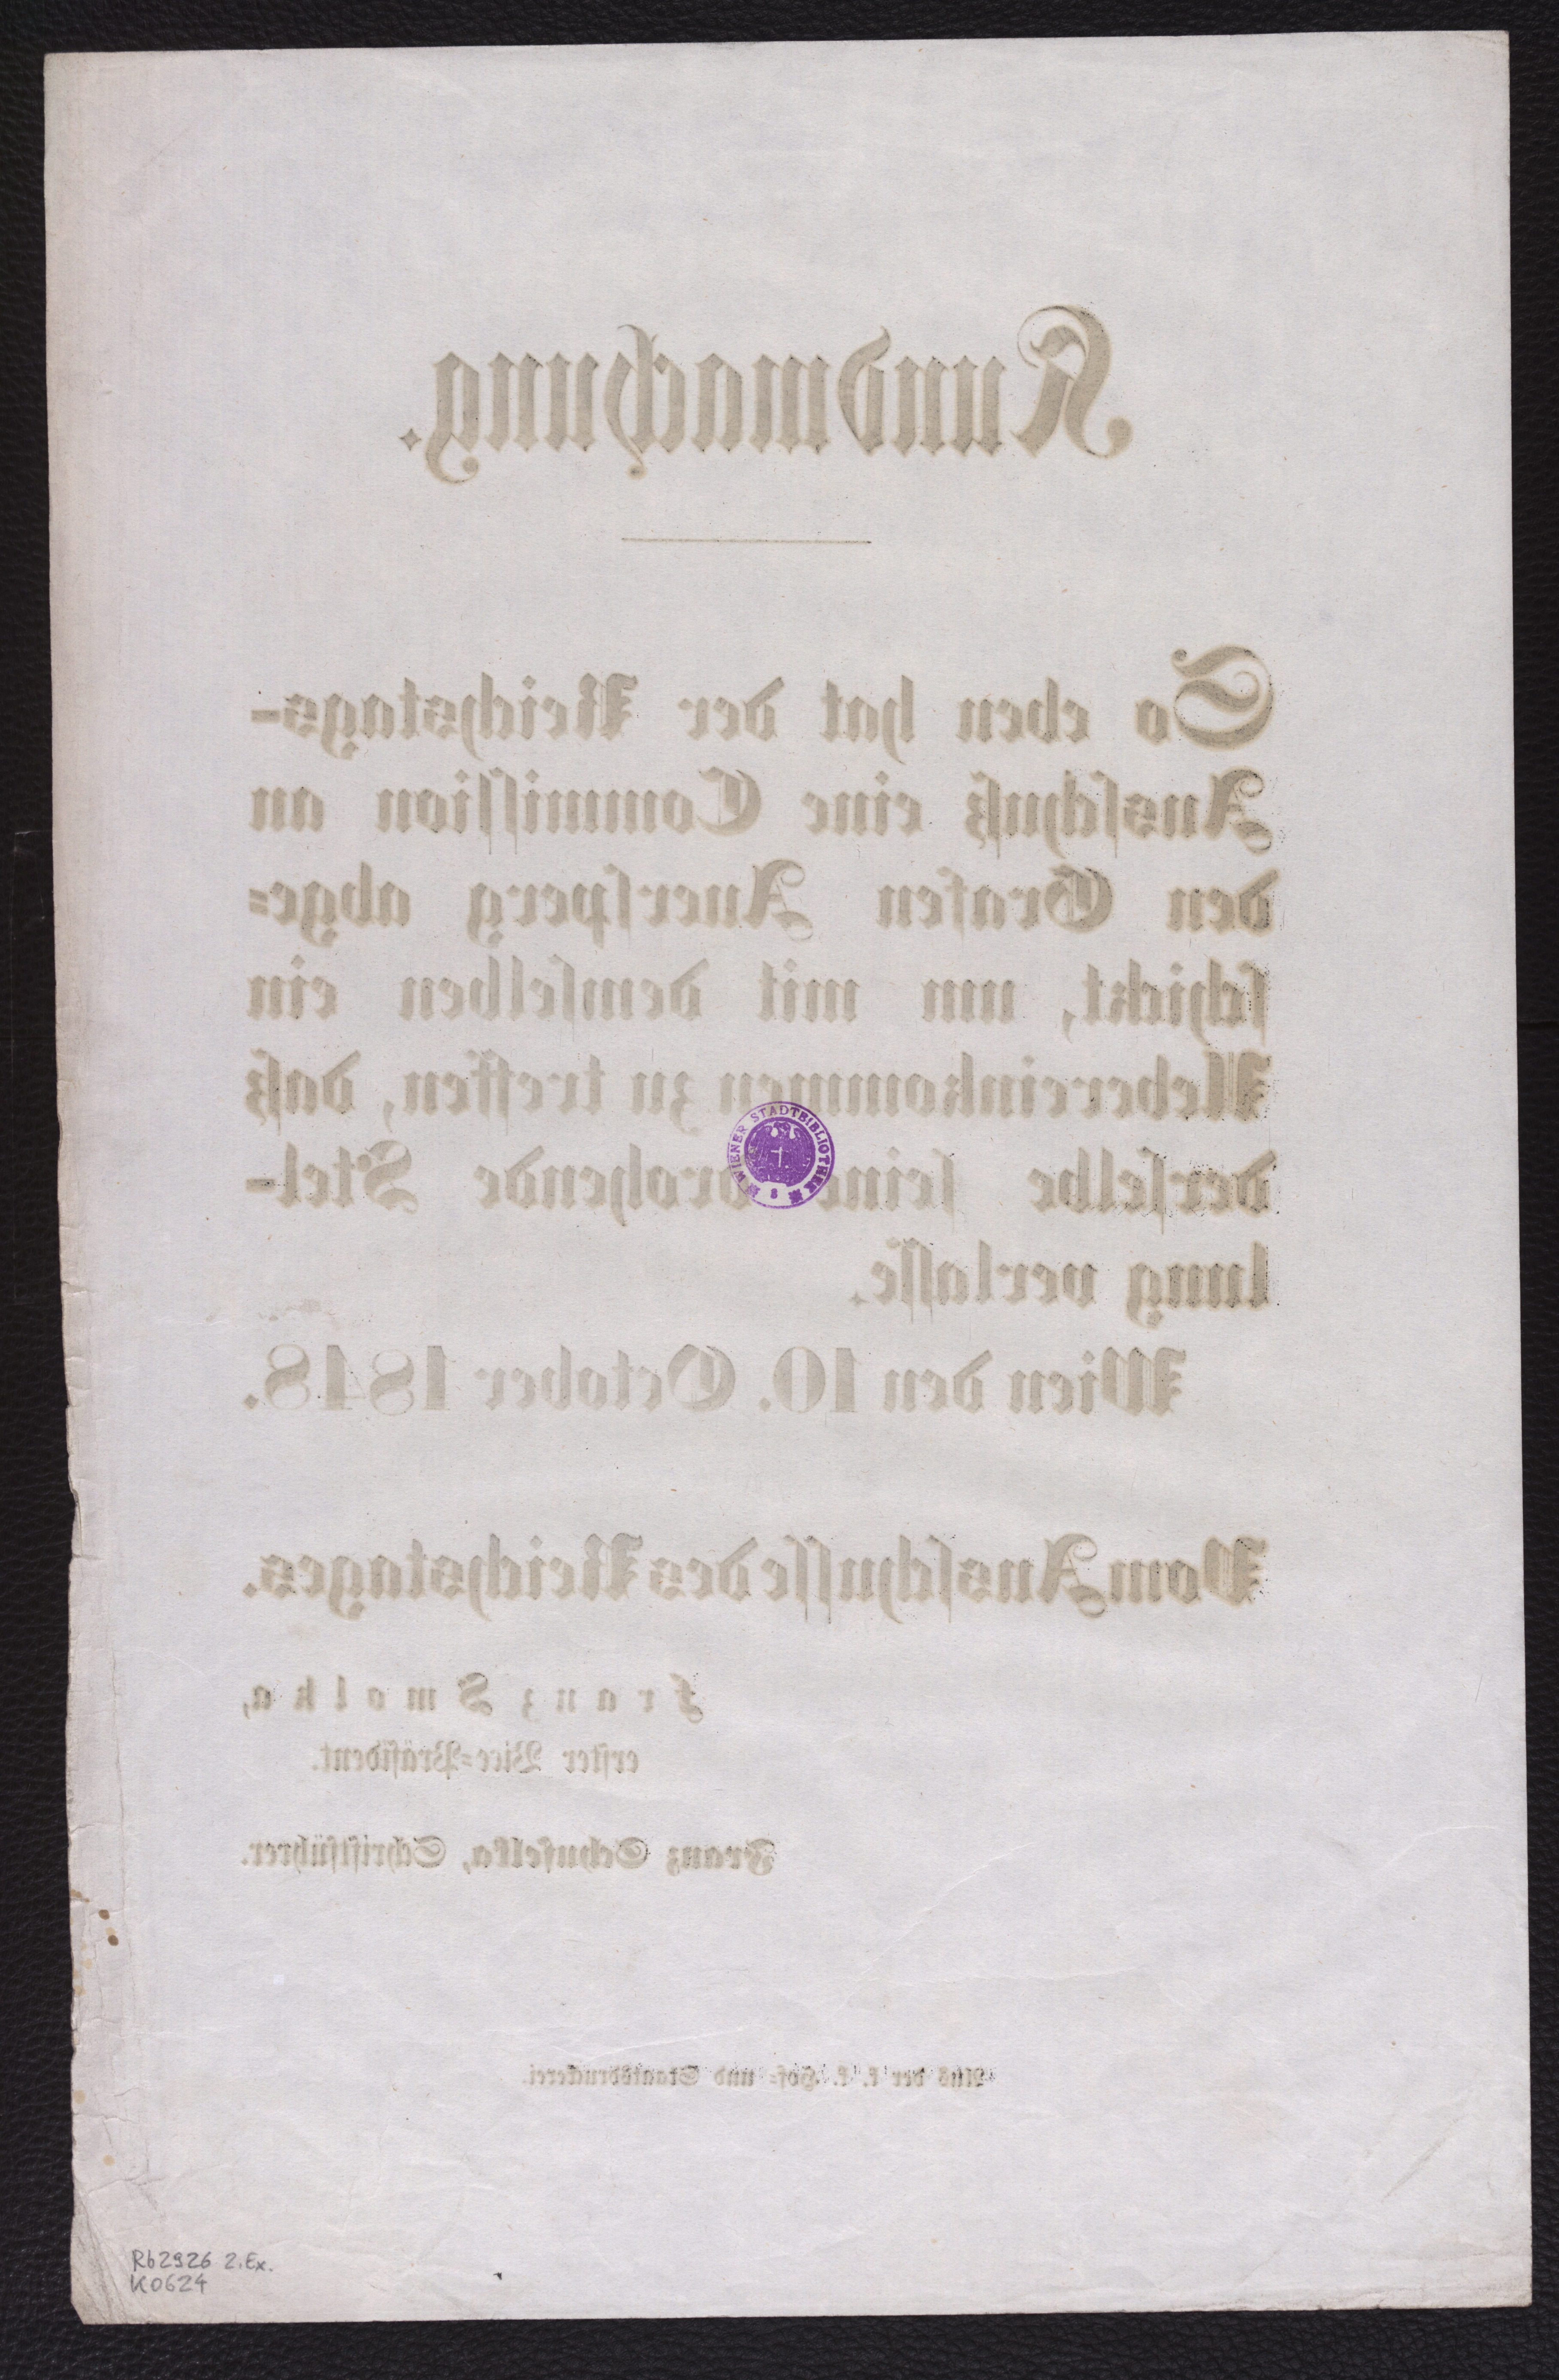 Kundmachung.
So eben hat der Reichstags-
Ausschuß eine Commission an
den Grafen Auersperg abge-
schickt, um mit demselben ein
Uebereinkommen zu treffen, daß
derselbe seine drohende Stel-
lung verlasse.
WIENER STADTBIBLIOTHEK
Wien den 10. October 1848.
Vom Ausschusse des Reichstages.
Franz Smolka,
erster Vice-Präsident.
Franz Schuselka, Schriftführer.
Aus der k. k. Hof- und Staatsdruckerei.
Rb2926 2.Ex.
K0624